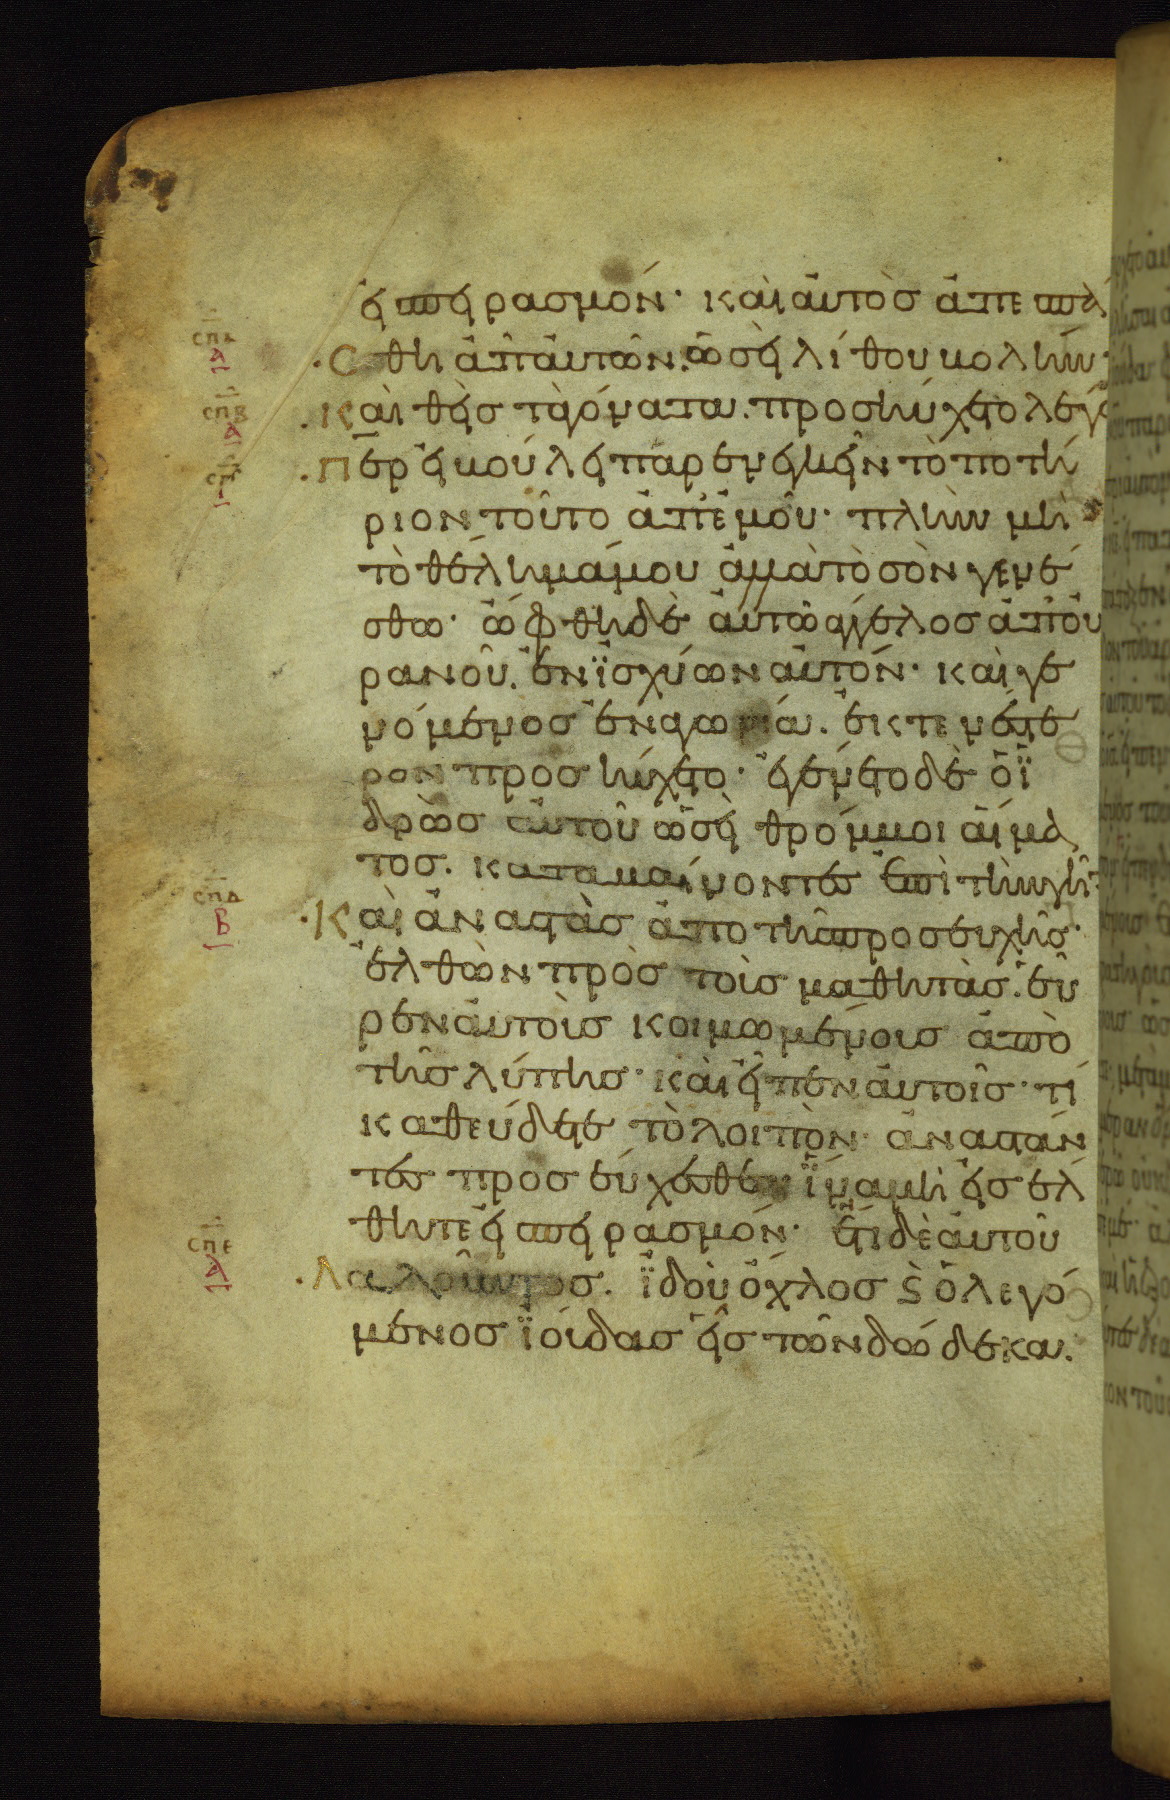 εἰς πειρασμόν· καὶ αὐτὸς ἀπεσπά
σπα
α
·Σθη ἀπ' αὐτῶν. ὡσεὶ λίθου βολὴν·
σπβ
α
·Καὶ θεὶς τὰ γόνατα. προσηύχετο λέγω
σπγ
·Περ εἰ βούλει παρένεγκεῖν τὸ ποτή
ριον τοῦτο ἀπ' ἐμοῦ· πλὴν μὴ
τὸ θέλημά μου ἀλλὰ τὸ σὸν γενέ
σθω· ὤφθη δὲ αὐτῶ ἄγγελος ἀπ' οὐ
ρανοῦ. ἐνϊσχύων αὐτόν· καὶ γε
νόμενος ἐν ἀγωνία. ἐκτενέστε
ρον προσηύχετο· ἐγένετο δὲ ὁ ϊ
δρὼς αὐτοῦ ὡσεὶ θρόμβοι αἵμα
τος. καταβαίνοντες ἐπὶ τὴν γῆν·
σπδ
β
·Καὶ ἀναστὰς ἀπο τῆς προσευχῆς·
ἐλθὼν πρὸς τοὶς μαθητάς. εὗ
ρεν αὐτοὶς κοιμωμένοις ἀπὸ
τῆς λύπης· καὶ εἶπεν αὐτοῖς· τί
καθεύδετε τὸ λοιπὸν· ἀναστάν
τες προσεύχεσθε· ϊνα μὴ εἰσέλ
θητε εἰς πειρασμόν· ἔτι δὲ αὐτοῦ
σπε
α
·Λαλοῦντος. ϊδοὺ ὄχλος ϗ ὁ λεγό
μενος ϊοίδας εἷς τῶν δώδεκα.